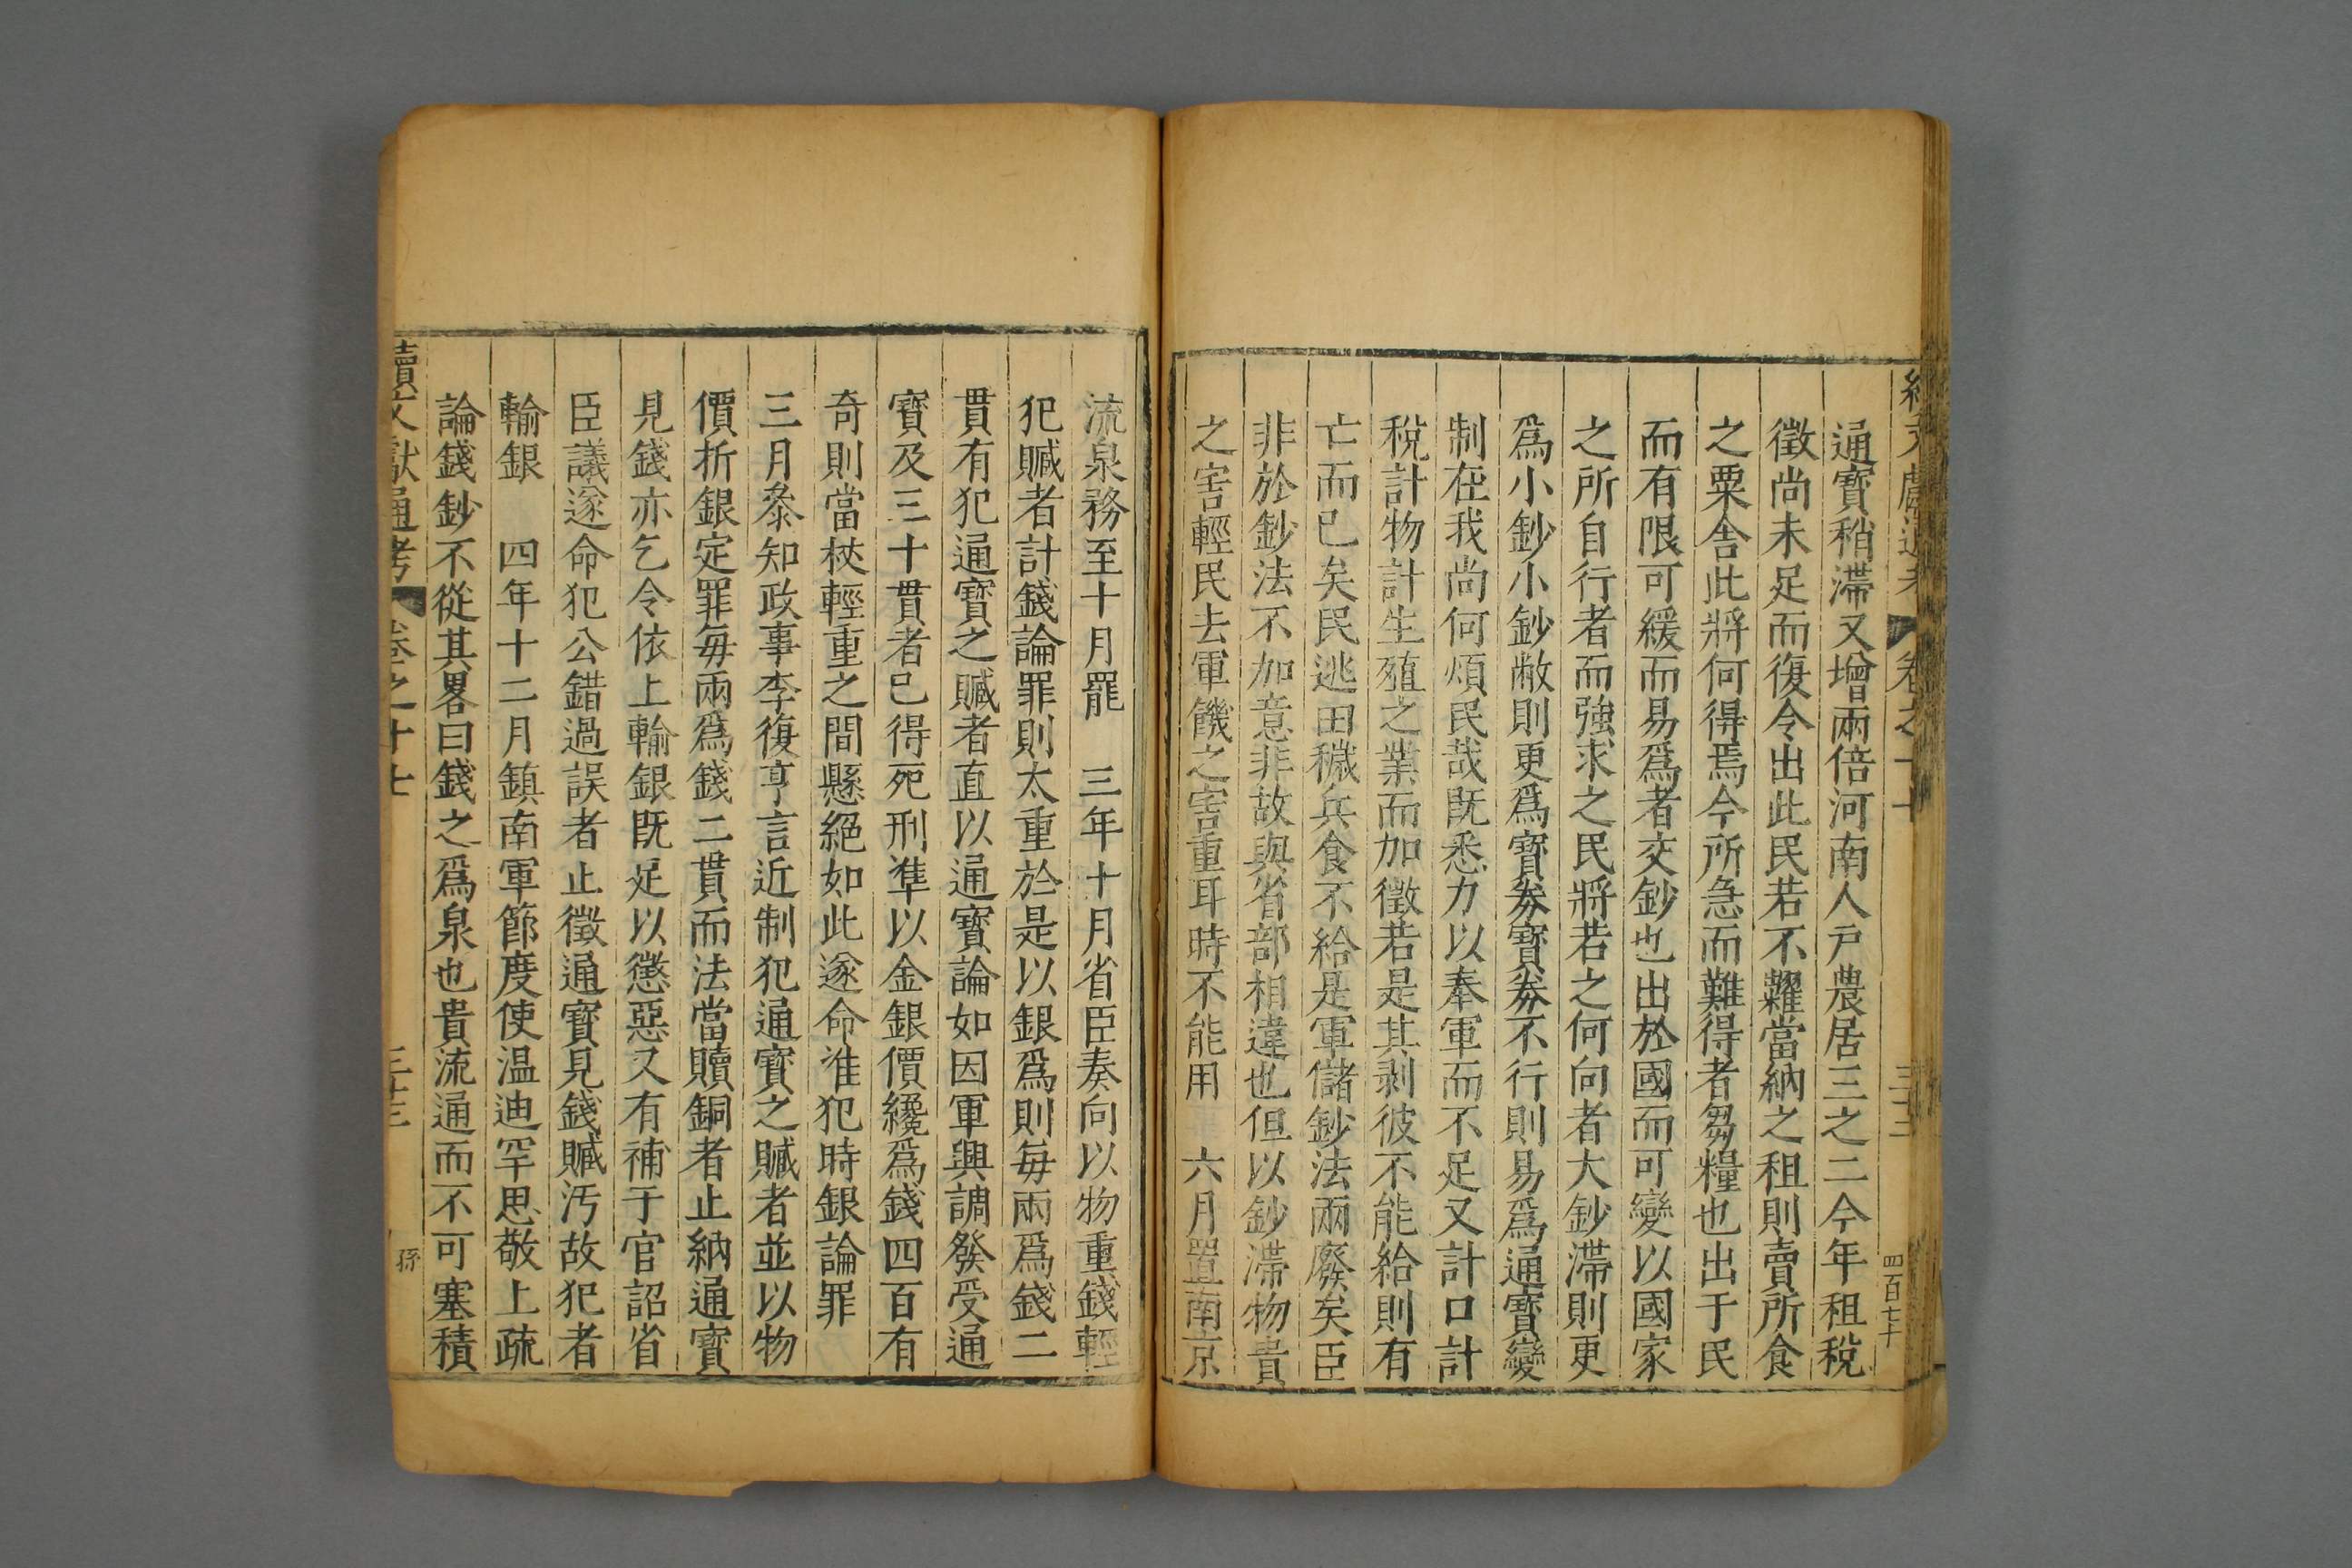 續文獻通考 卷之十七 三十三 四百七十
通寶稍滯又增兩倍河南人戶農居三之二今年租稅
徵尚未足而復令出此民若不糶當納之租則賣所食
之粟舍此將何得焉今所急而難得者芻糧也出于民
而有限可緩而易爲者交鈔也出於國而可變以國家
之所自行者而強求之民將若之何向者大鈔滯則更
爲小鈔小鈔敝則更爲寶券寶券不行則易爲通寶變
制在我尚何煩民哉既悉力以奉軍而不足又計口計
稅計物計生殖之業而加徵若是其剥彼不能給則有
亡而已矣民逃田穢兵食不給是軍儲鈔法兩廢矣臣
非於鈔法不加意非故與省部相違也但以鈔滯物貴
之害輕民去軍饑之害重耳時不能用　六月置南京
流泉務至十月罷　三年十月省臣奏向以物重錢輕
犯贓者計錢論罪則太重於是以銀爲則每兩爲錢二
貫有犯通寶之贓者直以通寶論如因軍興調發受通
寶及三十貫者已得死刑準以金銀價纔爲錢四百有
奇則當杖輕重之間懸絕如此遂命准犯時銀論罪
三月叅知政事李復亨言近制犯通寶之贓者並以物
價折銀定罪每兩爲錢二貫而法當贖銅者止納通寶
見錢亦乞令依上輸銀既足以懲惡又有補于官詔省
臣議遂命犯公錯過誤者止徵通寶見錢贓污故犯者
輸銀　四年十二月鎮南軍節度使温迪罕思敬上疏
論錢鈔不從其畧曰錢之爲泉也貴流通而不可塞積
續文獻通考 卷之十七 三十三